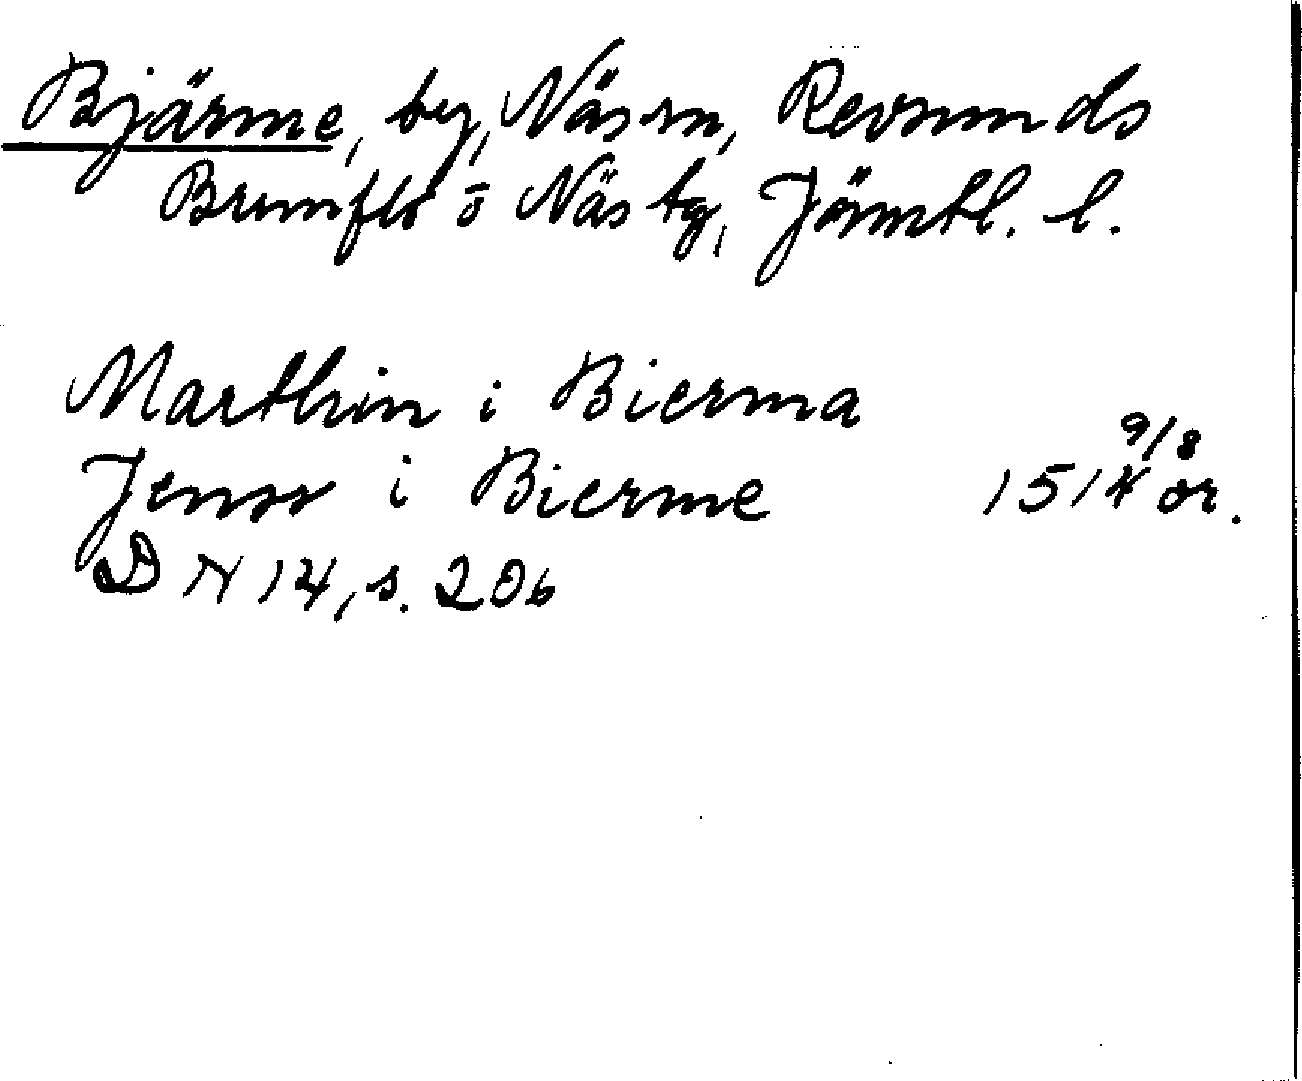 Bjärme, by, Näs sn, Revsunds
Brunflo o Näs tg, Jämtl. l.
Marthin i Bierma
9/8
Jenss i Bierme 1514 or.
DN 14, s. 206